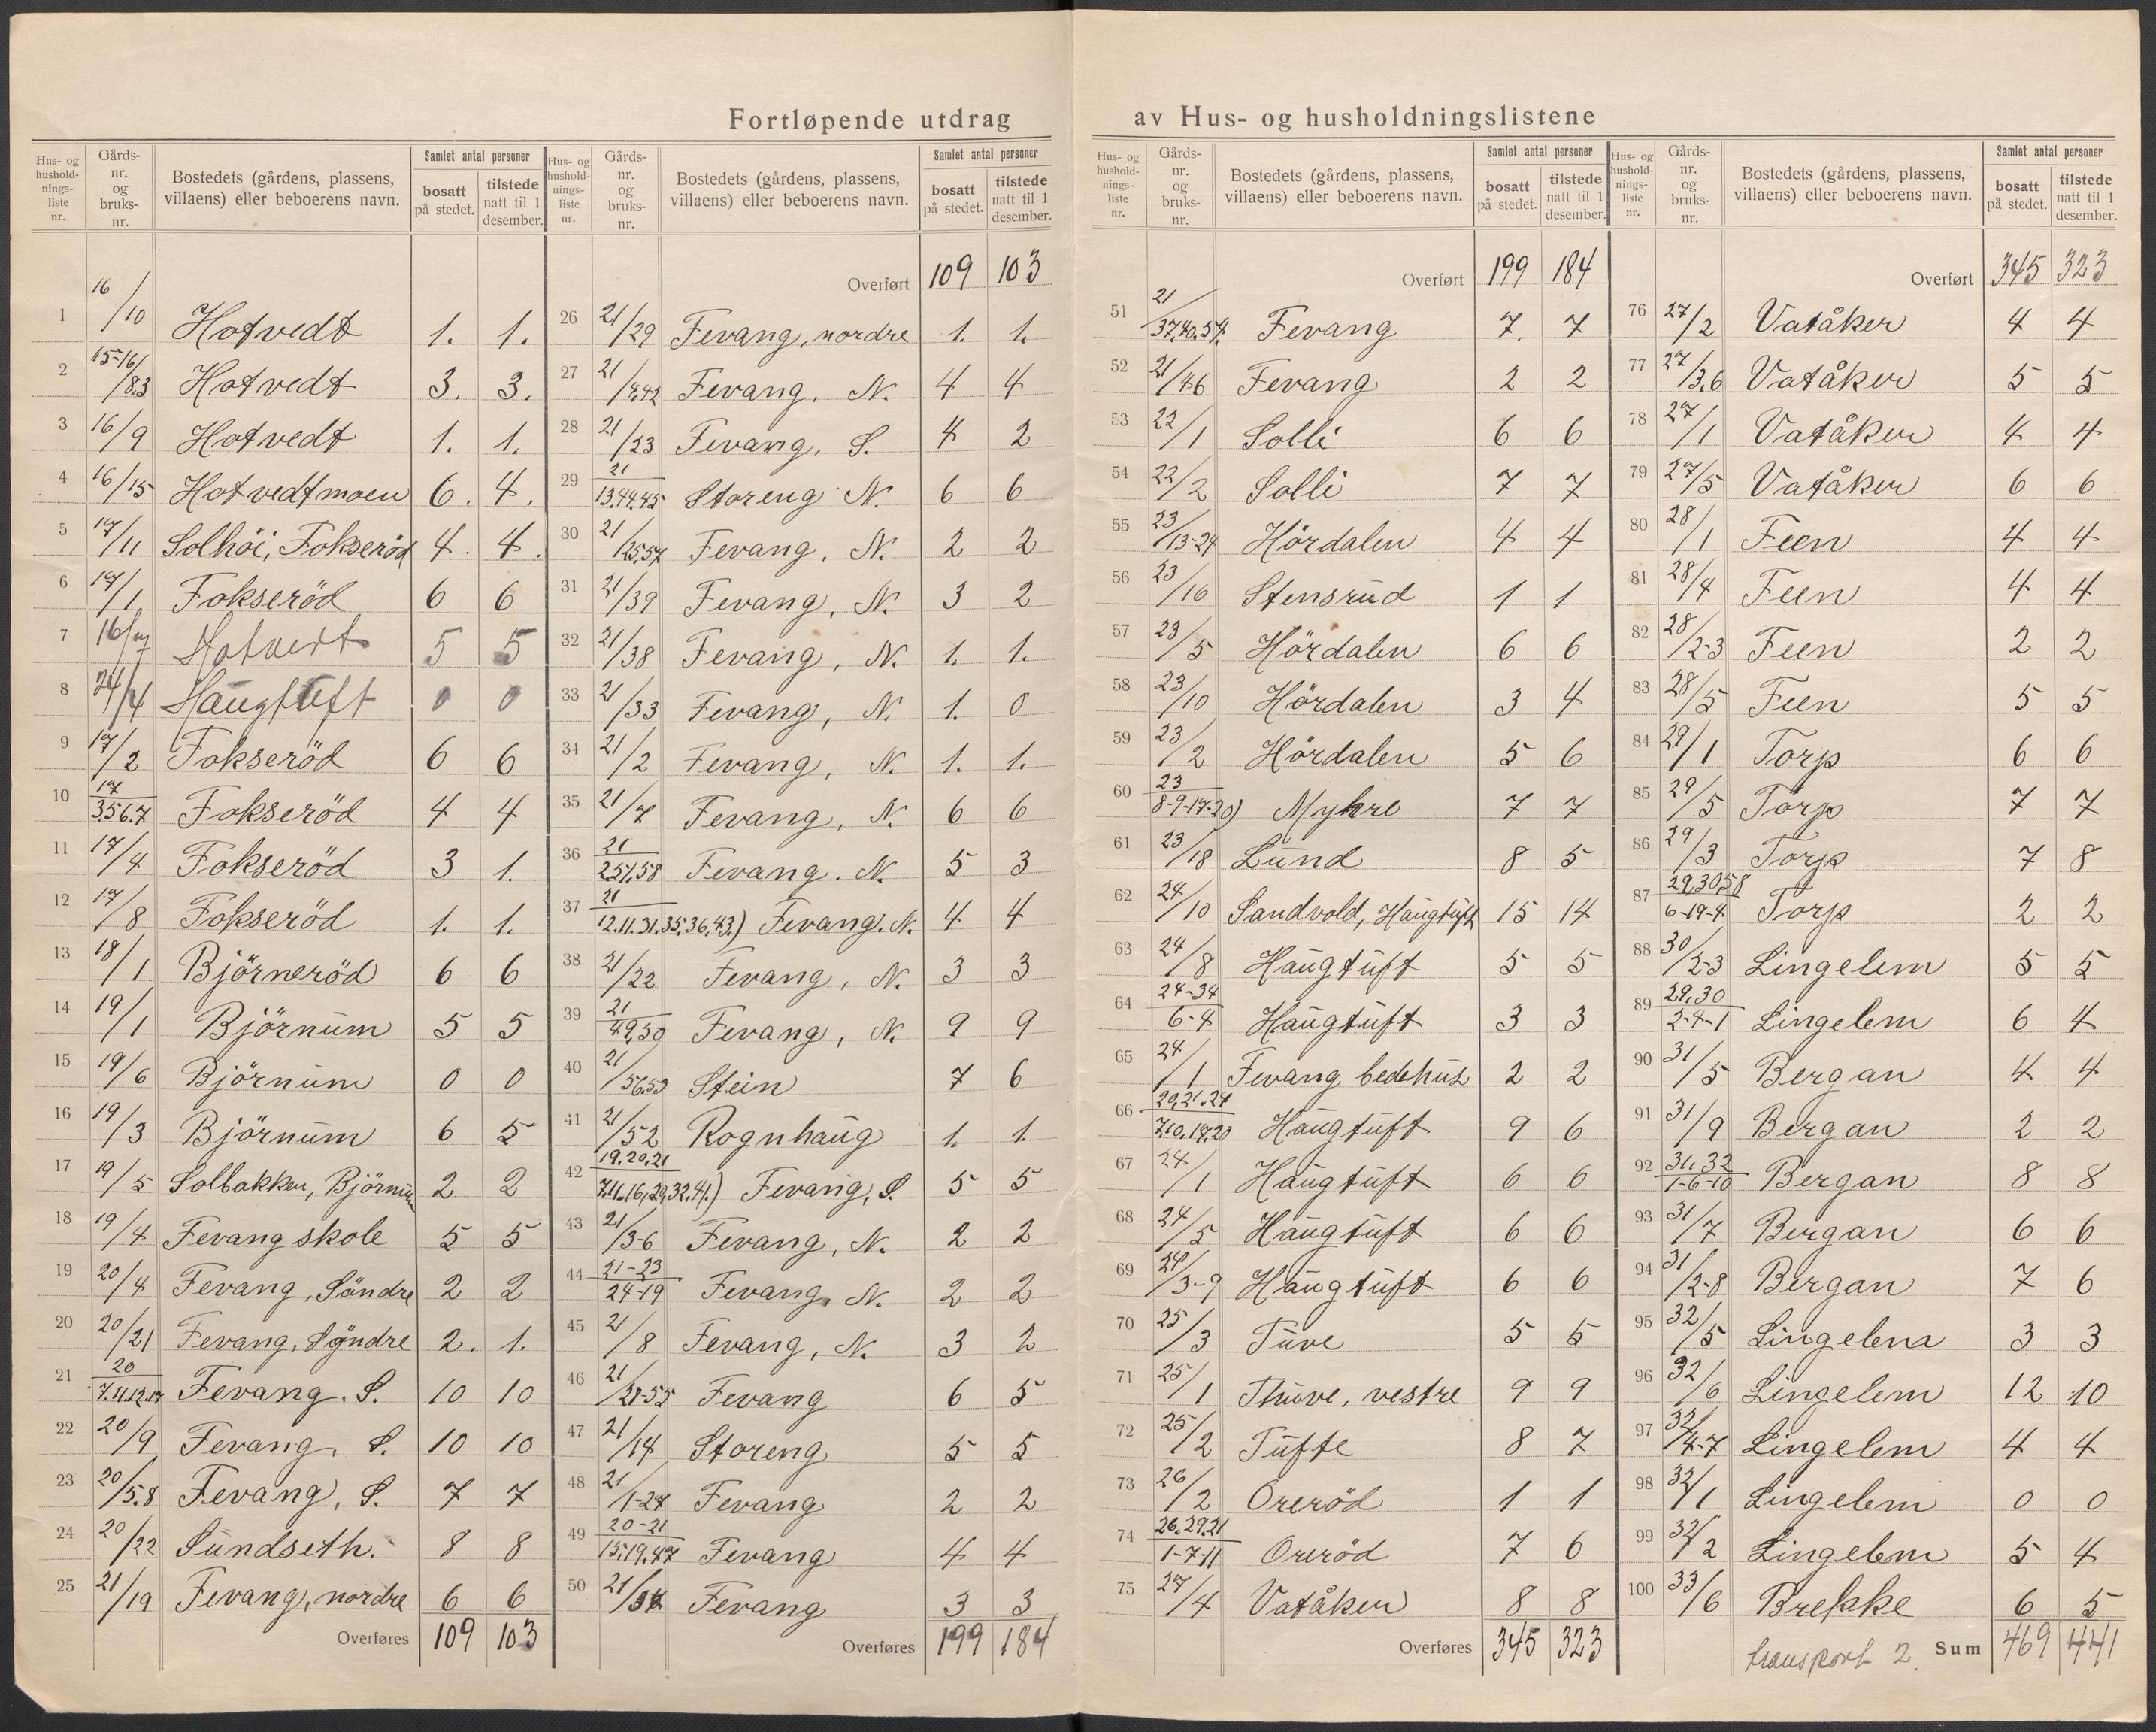 Fortløpende utdrag av Hus- og husholdningslistene
Hus- og husholdnings-liste nr. | Gårds-nr. og bruks-nr. | Bostedets (gårdens, plassens, villaens) eller beboerens navn. | Samlet antal personer: bosatt på stedet. | tilstede natt til 1 desember.
1 16/10 Hotvedt 1. 1.
2 15-16/8.3 Hotvedt 3. 3.
3 16/9 Hotvedt 1. 1.
4 16/15 Hotvedtmoen 6. 4.
5 17/11 Solhöi, Fokseröd 4. 4.
6 17/1 Fokseröd 6 6
7 16/ Hotvedt 5 5
8 24/4 Haugtuft 0 0
9 17/2 Fokseröd 6 6
10 17/3.5.6.7 Fokseröd 4 4
11 17/4 Fokseröd 3 1.
12 17/8 Fokseröd 1. 1.
13 18/1 Björneröd 6 6
14 19/1 Björnum 5 5
15 19/6 Björnum 0 0
16 19/3 Björnum 6 5
17 19/5 Solbakken, Björnum 2 2
18 19/4 Fevang skole 5 5
19 20/4 Fevang, Söndre 2 2
20 20/21 Fevang, Söndre 2. 1.
21 20/7.11.12.17 Fevang. S. 10 10
22 20/9 Fevang, S. 10 10
23 20/5.8 Fevang, S. 7 7
24 20/22 Sundseth. 8 8
25 21/19 Fevang, nordre 6 6
Overføres 109 103
Hus- og husholdnings-liste nr. | Gårds-nr. og bruks-nr. | Bostedets (gårdens, plassens, villaens) eller beboerens navn. | Samlet antal personer: bosatt på stedet. | tilstede natt til 1 desember.
Overført 109 103
26 21/29 Fevang, nordre 1. 1.
27 21/4,42 Fevang, N. 4 4
28 21/23 Fevang, S. 4 2
29 21/13.44.45 Storeng N. 6 6
30 21/25,57 Fevang, N. 2 2
31 21/39 Fevang, N. 3 2
32 21/38 Fevang, N. 1. 1.
33 21/33 Fevang, N. 1. 0
34 21/2 Fevang, N. 1. 1.
35 21/7 Fevang, N. 6 6
36 21/2.51,58 Fevang. N. 5 3
37 21/12.11.31.35.36.43.) Fevang. N. 4 4
38 21/22 Fevang, N. 3 3
39 21/49,50 Fevang, N. 9 9
40 21/56.53 Stein 7 6
41 21/52 Rognhaug 1. 1.
42 19.20.21/7.11.16,29,32,41.) Fevang, S. 5 5
43 21/3-6 Fevang, N. 2 2
44 21-23/24-19 Fevang, N. 2 2
45 21/8 Fevang, N. 3 2
46 21/28-55 Fevang 6 5
47 21/14 Storeng 5 5
48 21/1-27 Fevang 2 2
49 20-21/15.19.47 Fevang 4 4
50 21/ Fevang 3 3
Overføres 199 184
Hus- og husholdnings-liste nr. | Gårds-nr. og bruks-nr. | Bostedets (gårdens, plassens, villaens) eller beboerens navn. | Samlet antal personer: bosatt på stedet. | tilstede natt til 1 desember.
Overført 199 184
51 21/37,40.54. Fevang 7. 7
52 21/46 Fevang 2 2
53 22/1 Solli 6 6
54 22/2 Solli 7 7
55 23/13-24 Hördalen 4 4
56 23/16 Stensrud 1 1
57 23/5 Hördalen 6 6
58 23/10 Hördalen 3 4
59 23/2 Hördalen 5 6
60 23/8-9-17-20) Myhre 7 7
61 23/18 Lund 8 5
62 24/10 Sandvold, Haugtuft 15 14
63 24/8 Haugtuft 5 5
64 24-34/6-4 Haugtuft 3 3
65 24/1 Fevang bedehus 2 2
66 20,21.24/7.10.17.20 Haugtuft 9 6
67 24/1 Haugtuft 6 6
68 24/5 Haugtuft 6 6
69 24/3-9 Haugtuft 6 6
70 25/3 Tuve 5 5
71 25/1 Thuve, vestre 9 9
72 25/2 Tufte 8 7
73 26/2 Oreröd 1 1
74 26.29.21/1-7-11 Oreröd 7 6
75 27/4 Vatåker 8 8
Overføres 345 323
Hus- og husholdnings-liste nr. | Gårds-nr. og bruks-nr. | Bostedets (gårdens, plassens, villaens) eller beboerens navn. | Samlet antal personer: bosatt på stedet. | tilstede natt til 1 desember.
Overført 345 323
76 27/2 Vatåker 4 4
77 27/3,6 Vatåker 5 5
78 27/1 Vatåker 4 4
79 27/5 Vatåker 6 6
80 28/1 Feen 4 4
81 28/4 Feen 4 4
82 28/2-3 Feen 2 2
83 28/5 Feen 5 5
84 29/1 Torp 6 6
85 29/5 Torp 7 7
86 29/3 Torp 7 8
87 29,30,58/6-19-4 Torp 2 2
88 30/2-3 Lingelem 5 5
89 29.30/2-4-1 Lingelem 6 4
90 31/5 Bergan 4 4
91 31/9 Bergan 2 2
92 31.32/1-6-10 Bergan 8 8
93 31/7 Bergan 6 6
94 31/2-8 Bergan 7 6
95 32/5 Lingelem 3 3
96 32/6 Lingelem 12 10
97 32/4-7 Lingelem 4 4
98 32/1 Lingelem 0 0
99 32/2 Lingelem 5 4
100 33/6 Brekke 6 5
transport 2. Sum 469 441